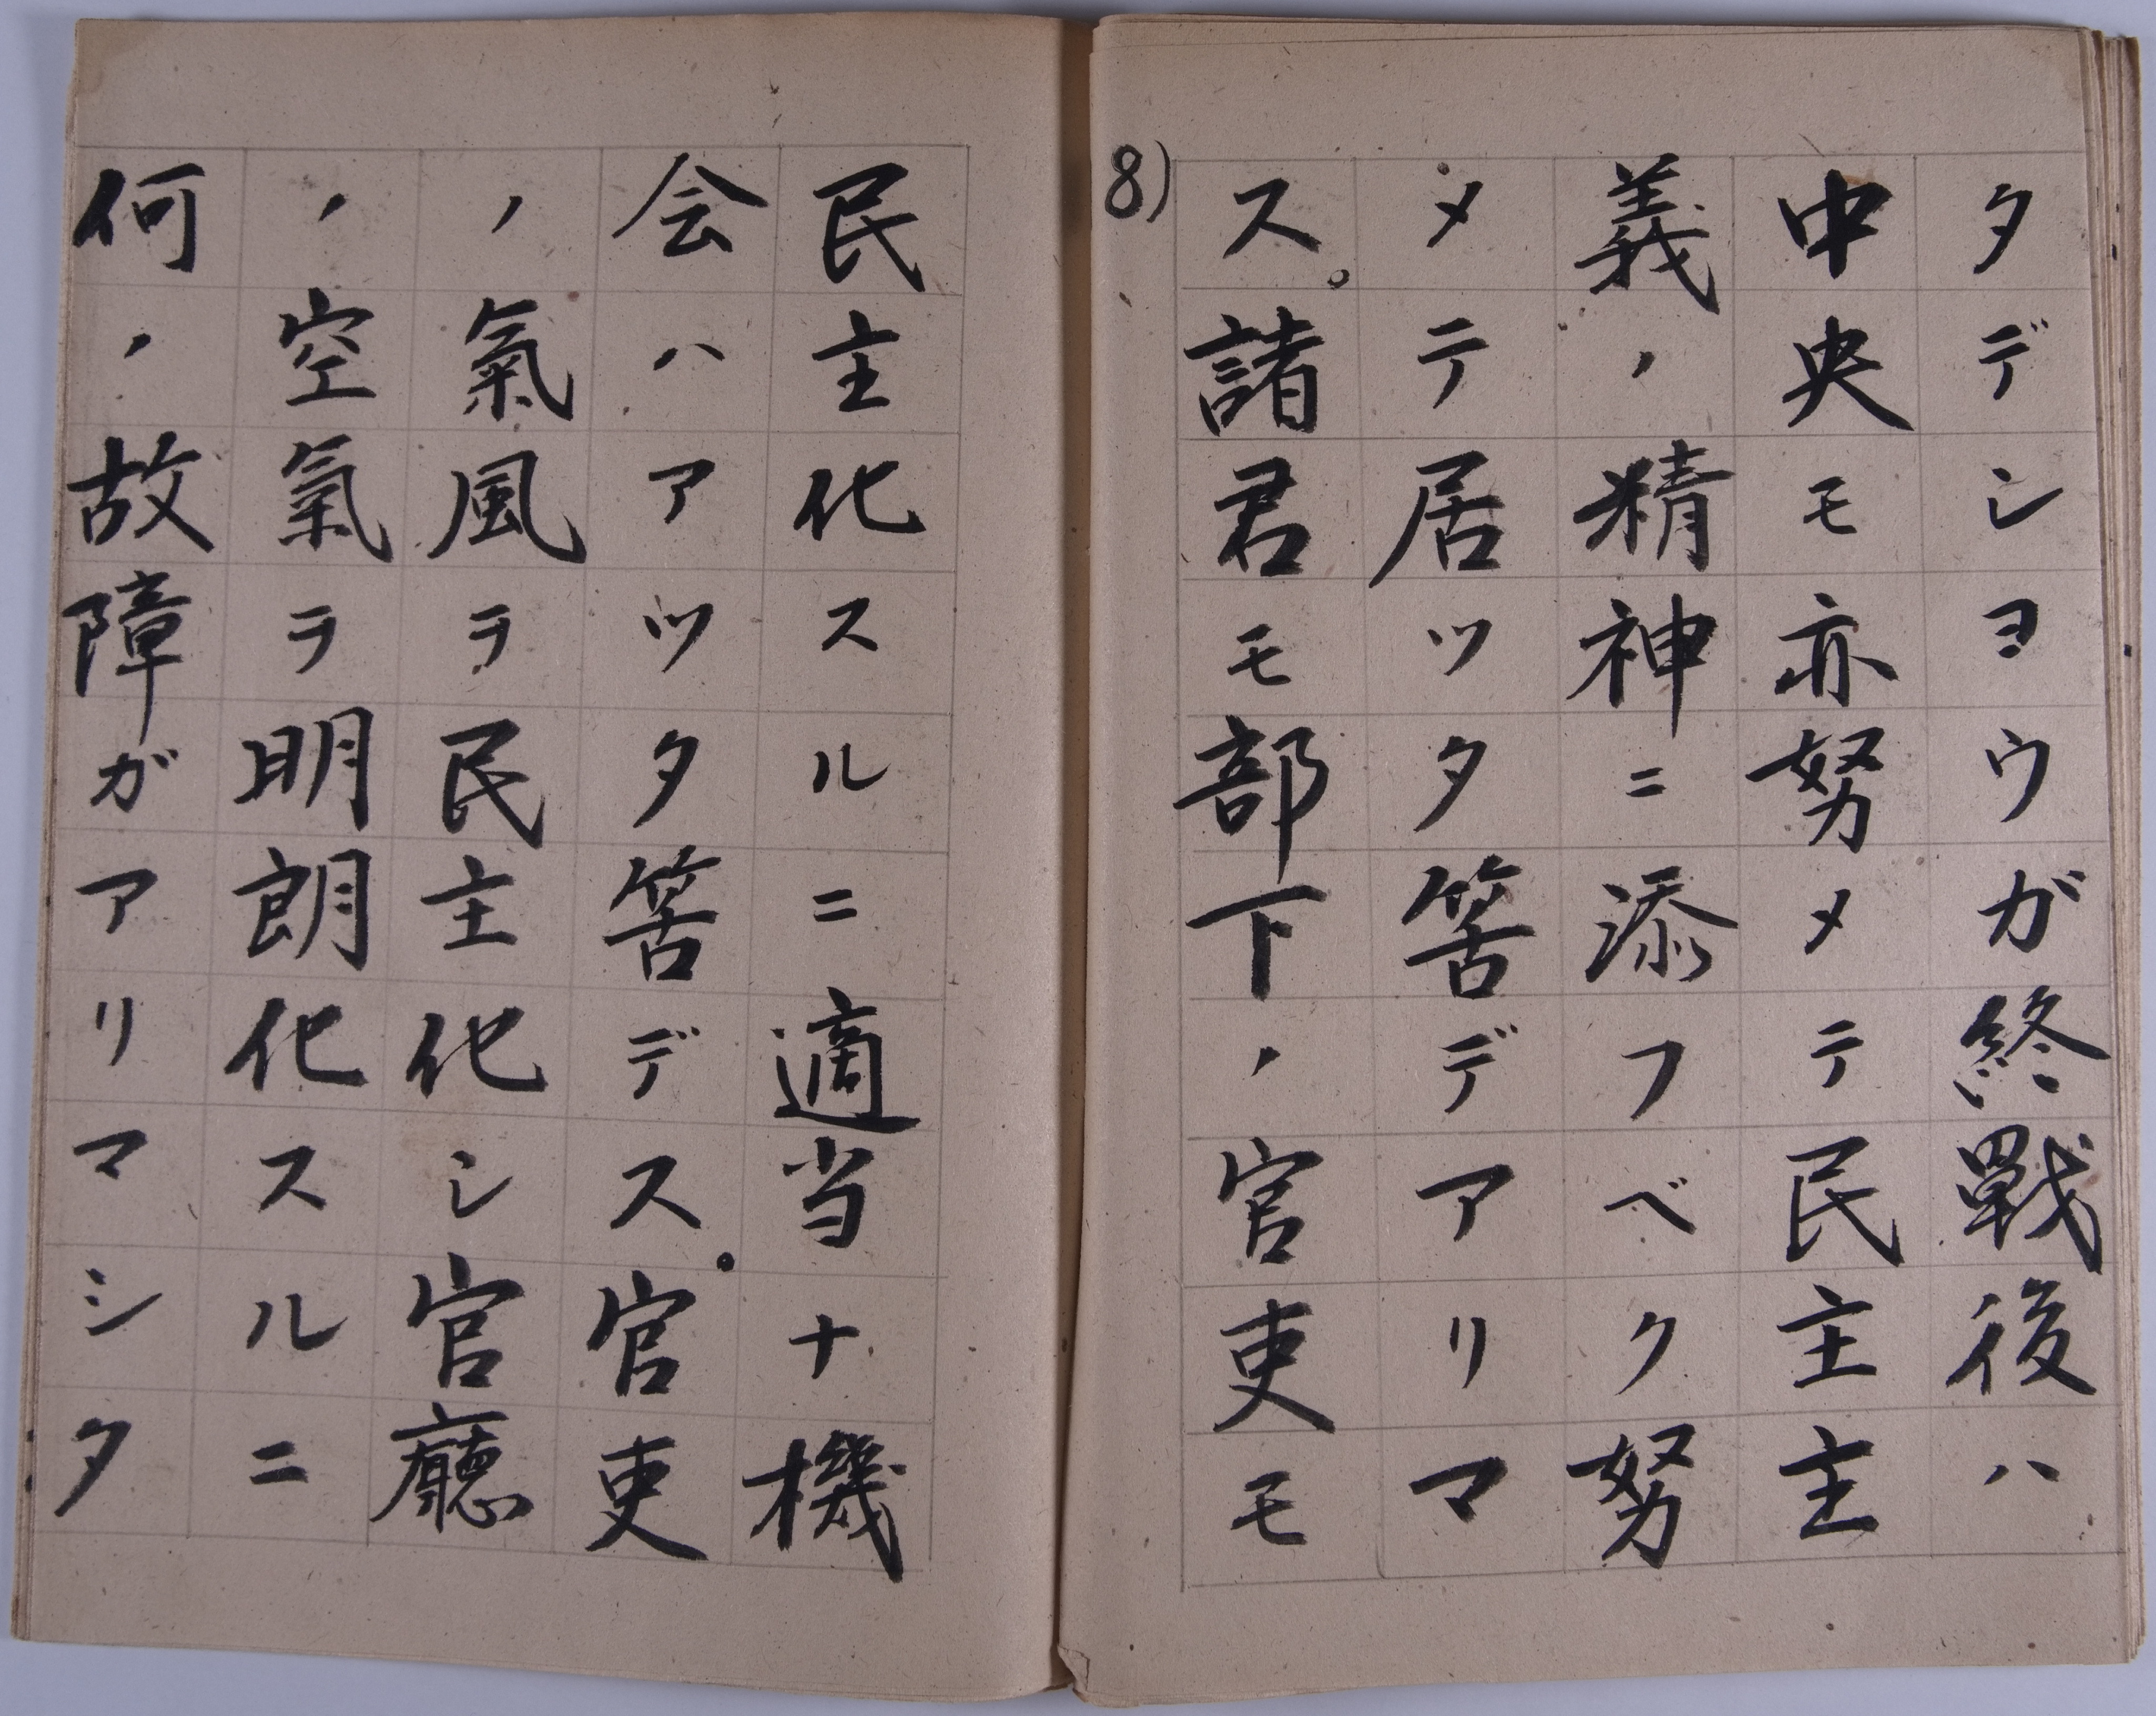 タデシヨウガ終戰後ハ
中央モ亦努メテ民主主
義ノ精神ニ添フベク努
メテ居ツタ筈デアリマ
ス。諸君モ部下ノ官吏モ
8)
民主化スルニ適当ナ機
会ハアツタ筈デス。官吏
ノ氣風ヲ民主化シ官廳
ノ空氣ヲ明朗化スルニ
何ノ故障ガアリマシタ